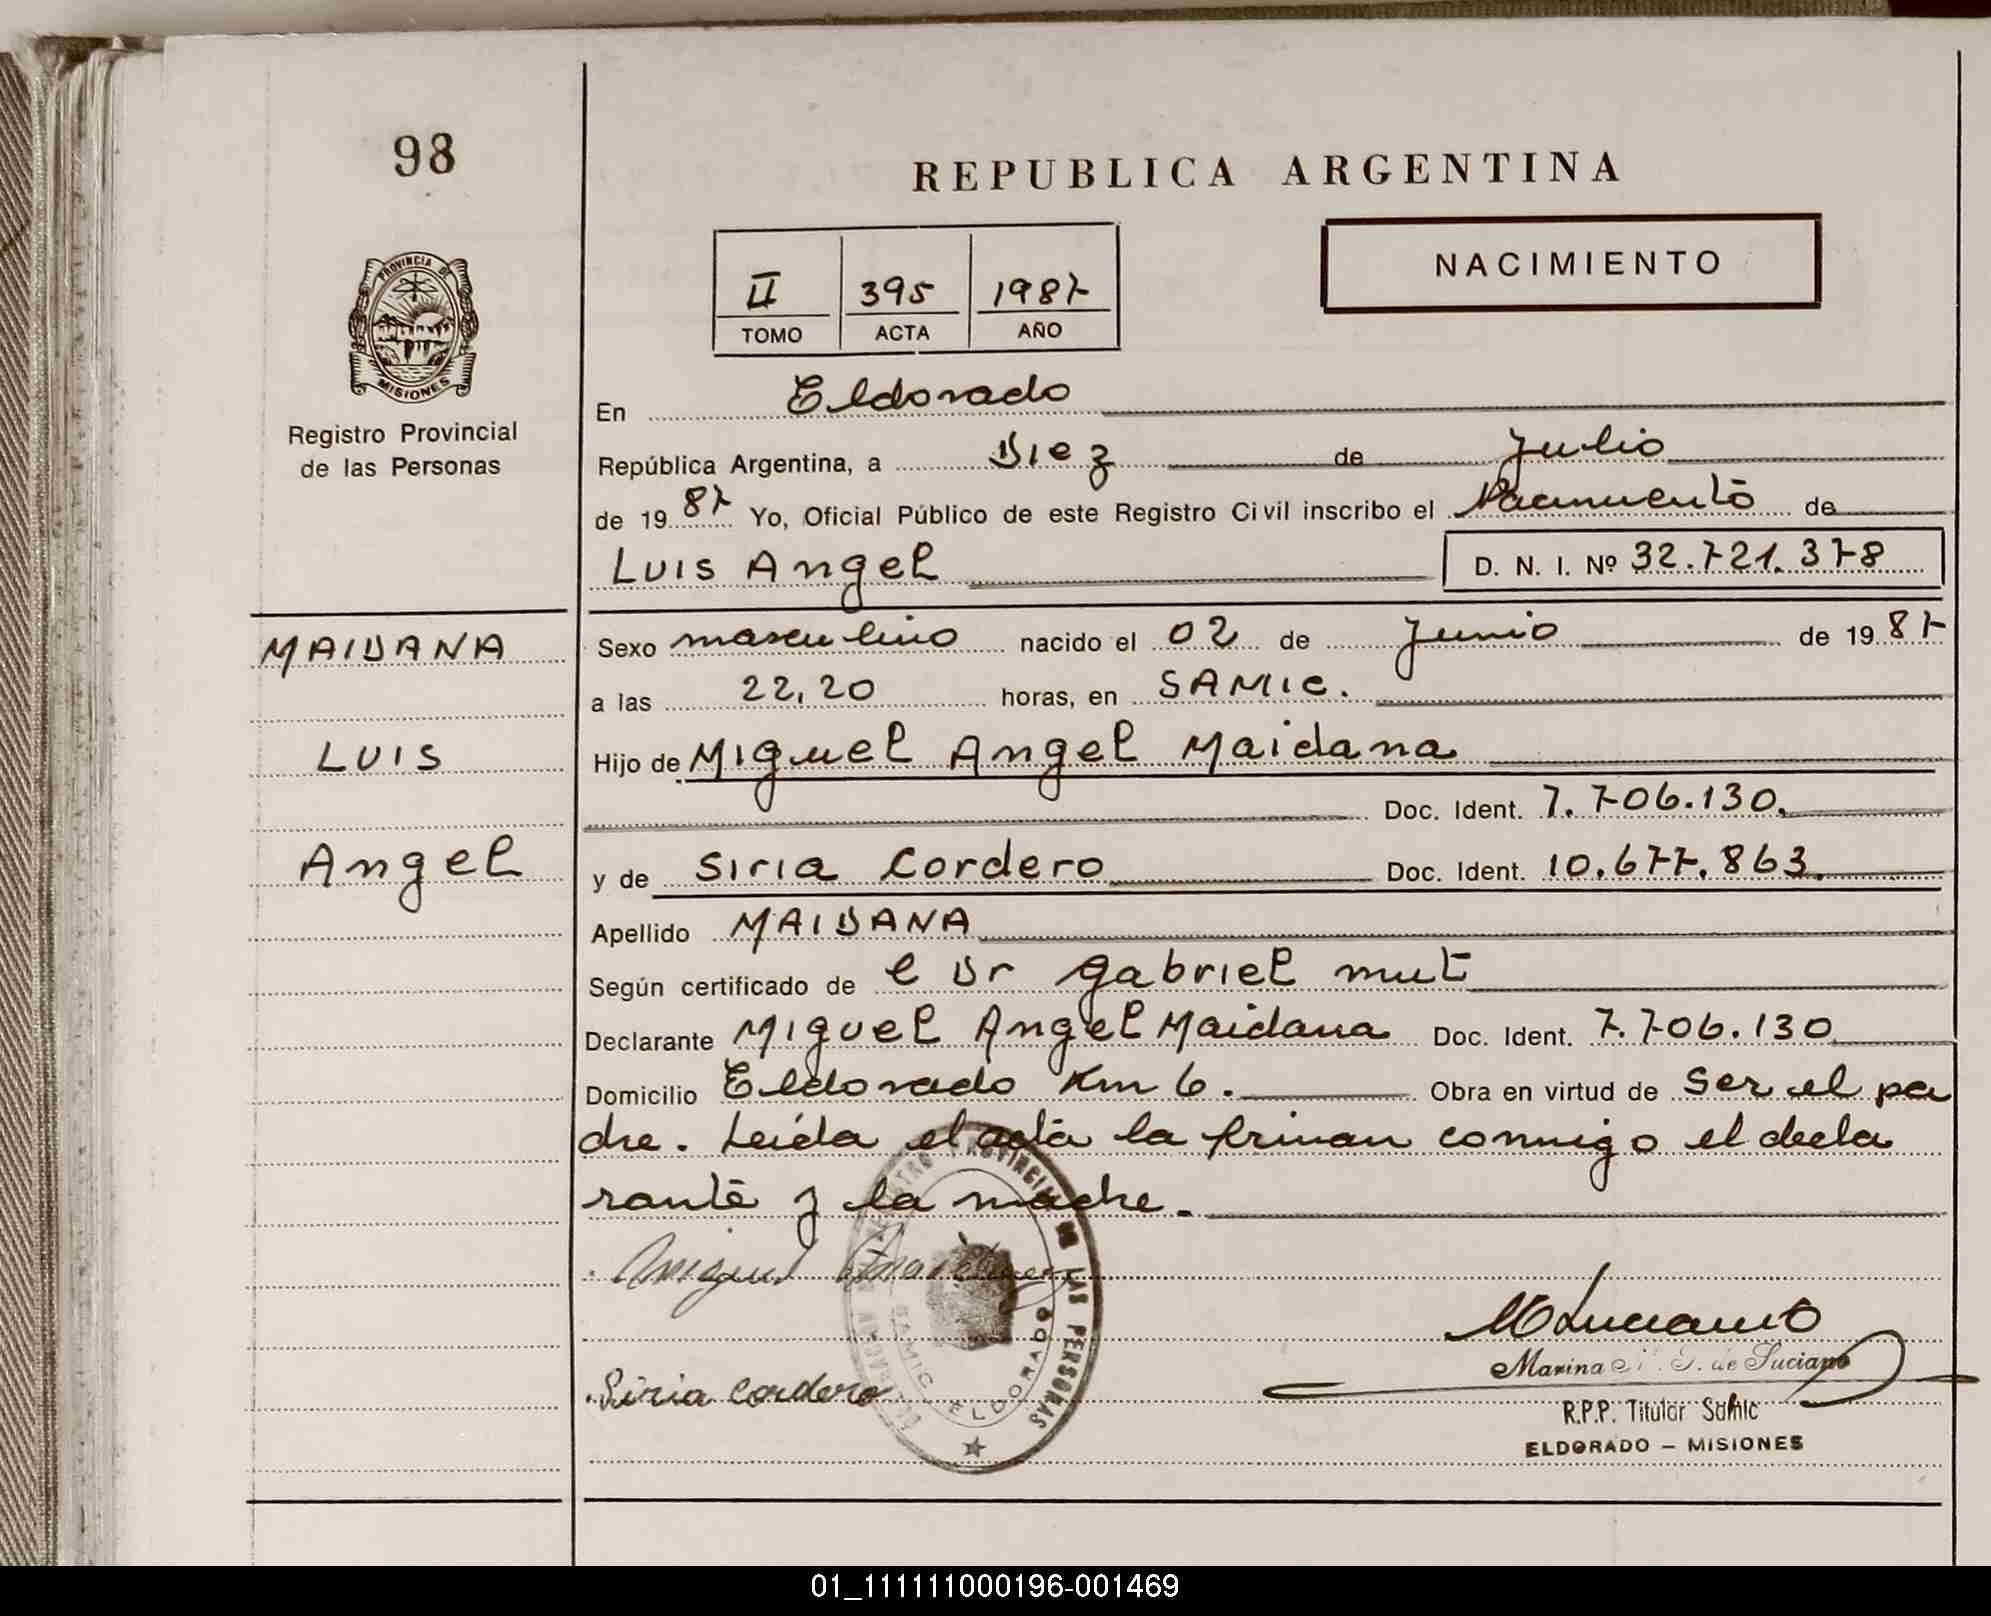 98
REPUBLICA ARGENTINA
PROVINCIA DE
MISIONES
Registro Provincial
de las Personas
II 395 1987
TOMO ACTA AÑO
NACIMIENTO
En Eldorado
República Argentina, a Diez de Julio
de 19 87 Yo, Oficial Público de este Registro Civil inscribo el Nacimiento de
Luis Angel D. N. I. Nº 32.721.378
MAIDANA
LUIS
Angel
Sexo masculino nacido el 02 de Junio de 19 87
a las 22,20 horas, en SAMIC.
Hijo de Miguel Angel Maidana
Doc. Ident. 7.706.130.
y de Siria Cordero Doc. Ident. 10.677.863.
Apellido MAIDANA
Según certificado de e Dr Gabriel mut
Declarante Miguel Angel Maidana Doc. Ident. 7.706.130
Domicilio Eldorado Km 6. Obra en virtud de ser el pa
dre. Leída el acta la firman conmigo el decla
rante y la madre.
Miguel
Siria Cordero
REGISTRO PROVINCIAL DE LAS PERSONAS
SAMIC ELDORADO
M Luciano
Marina de Luciano
R.P.P. Titular Samic
ELDORADO – MISIONES
01_111111000196-001469